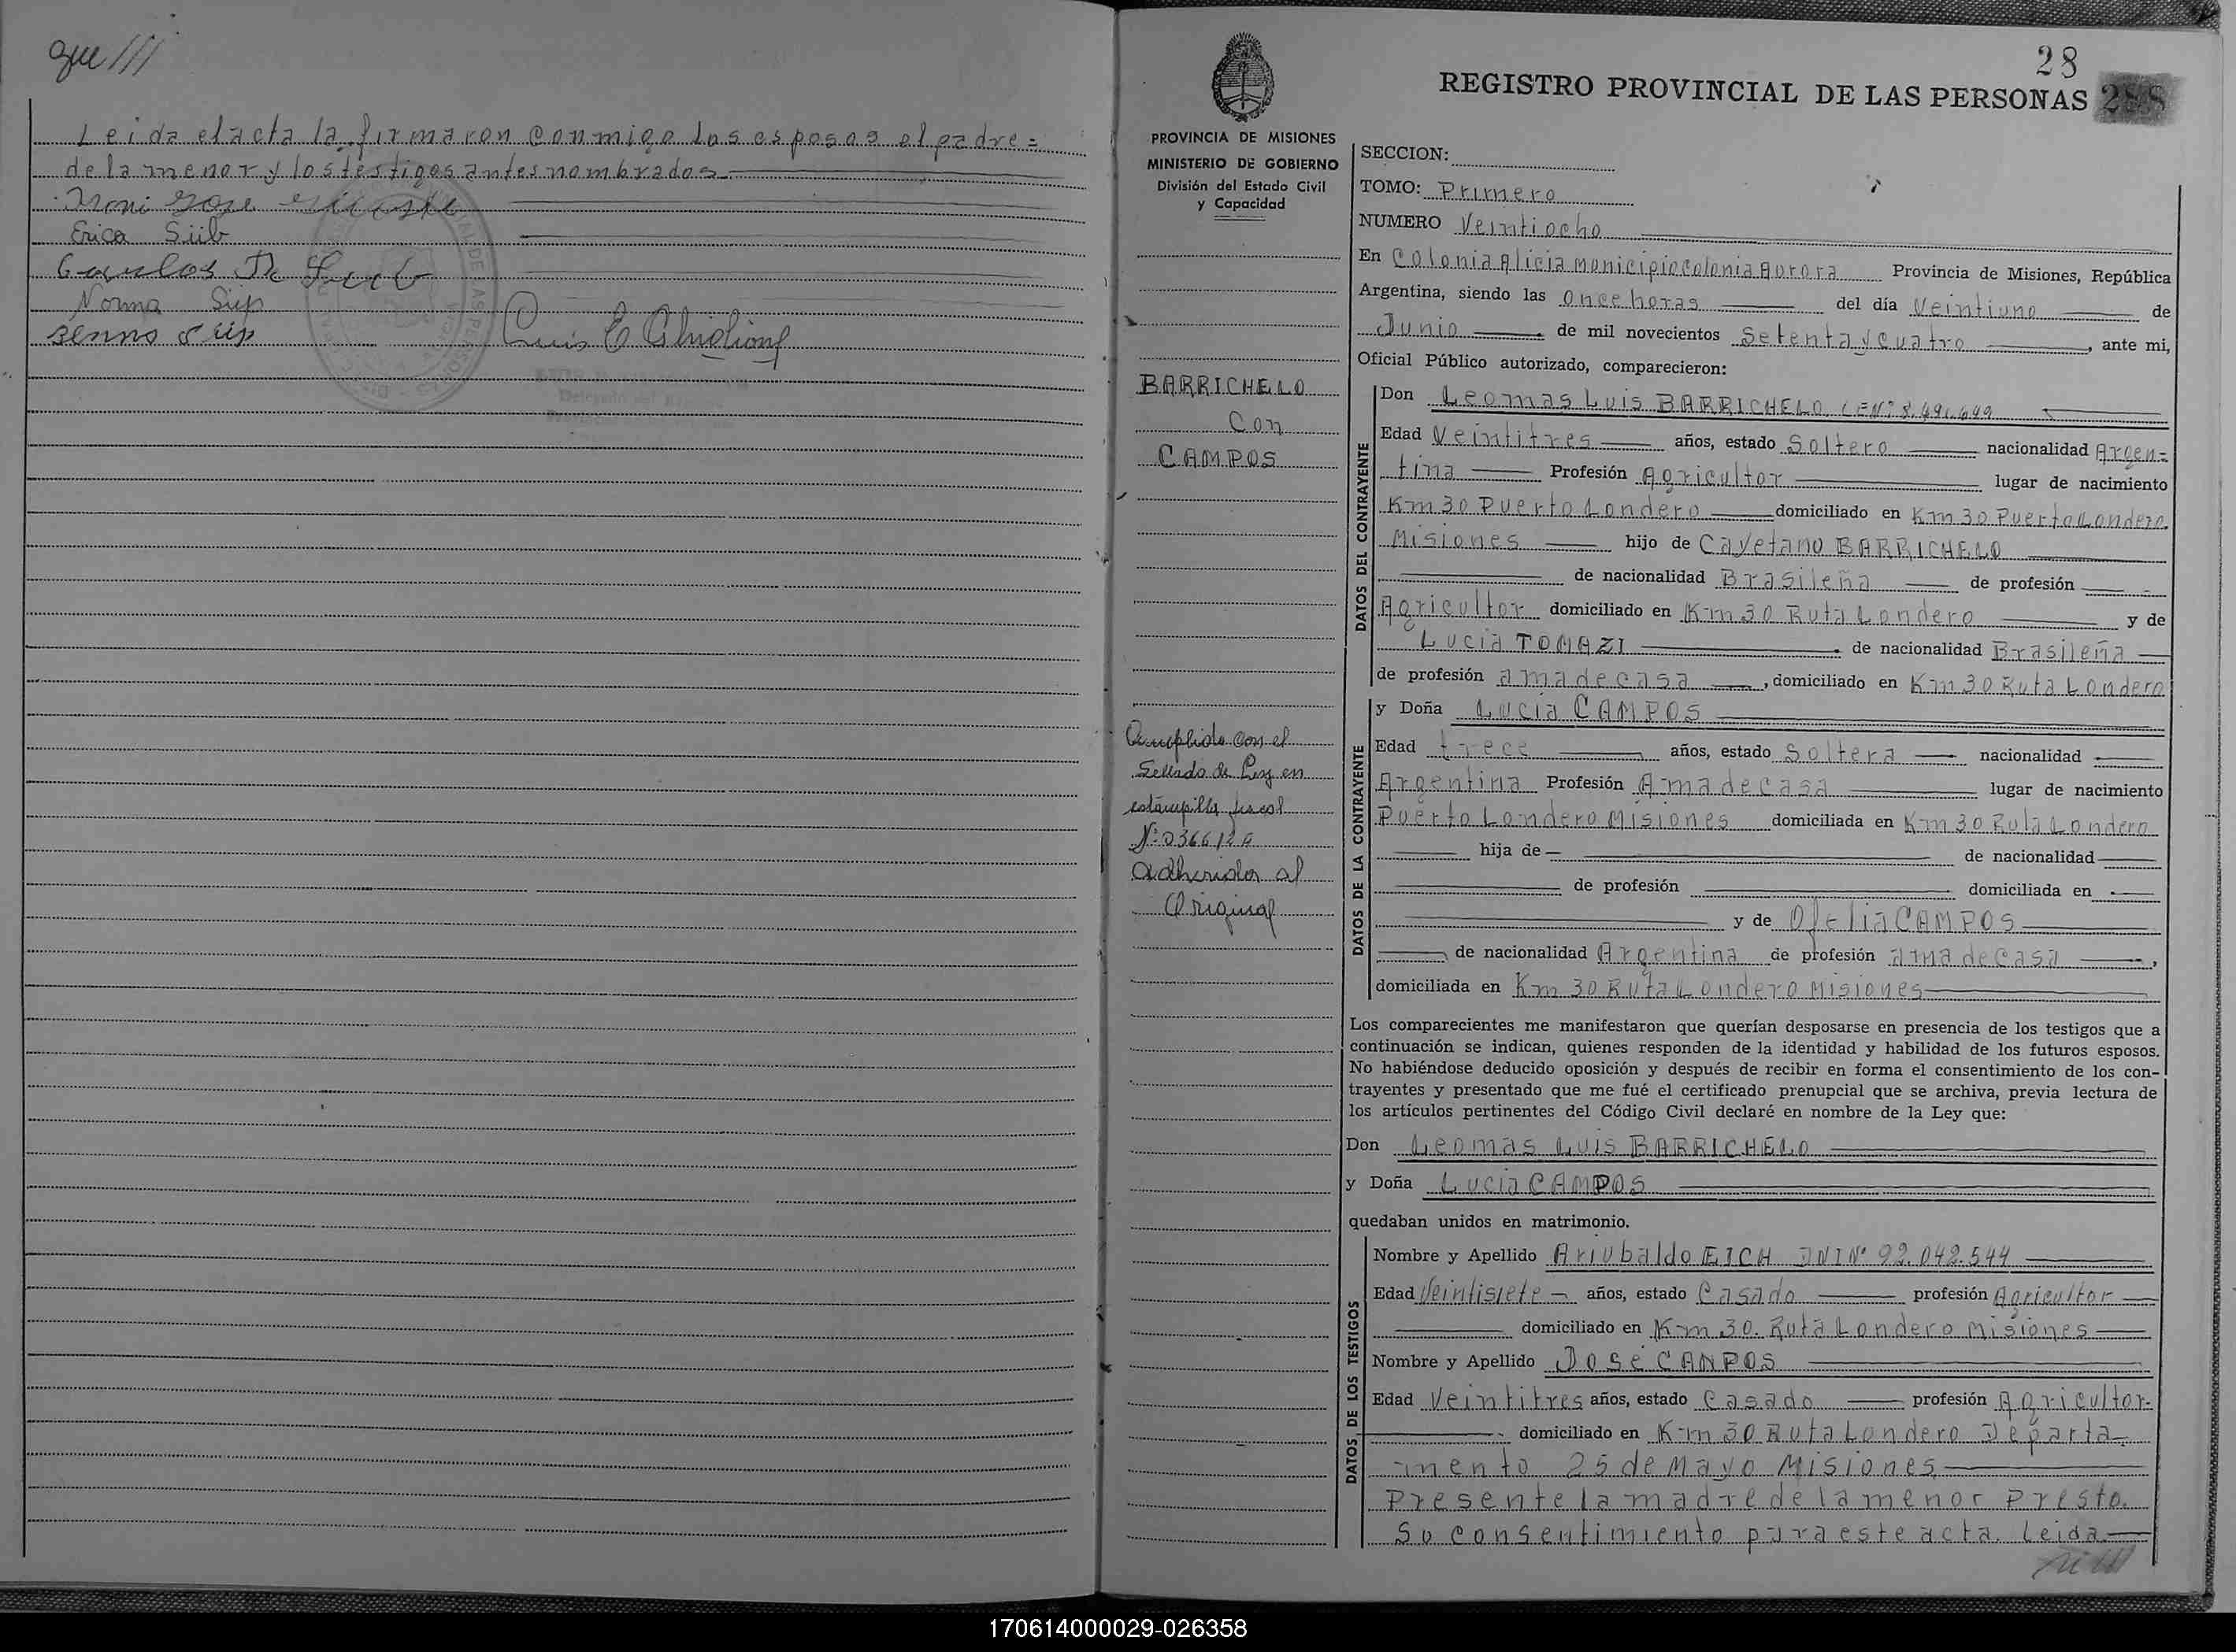 que ///
Leida el acta la firmaron conmigo los esposos el padre=
de la menor y los testigos antes nombrados
Erica Süb
Norma Siip
Luis E Ghiglione
28
REGISTRO PROVINCIAL DE LAS PERSONAS 288
PROVINCIA DE MISIONES
MINISTERIO DE GOBIERNO
División del Estado Civil
y Capacidad
BARRICHELO
Con
CAMPOS
Cumplido con el
Sellado de Ley en
estampilla fiscal
adheridos al
Original
SECCION:
TOMO: Primero
NUMERO Veintiocho
En Colonia Alicia municipio colonia Aurora Provincia de Misiones, República
Argentina, siendo las once horas del día Veintiuno de
Junio de mil novecientos Setenta y cuatro, ante mi,
Oficial Público autorizado, comparecieron:
DATOS DEL CONTRAYENTE
Don Leomas Luis BARRICHELO LE Nº 8.491.649
Edad Veintitres años, estado Soltero nacionalidad Argen=
tina Profesión Agricultor lugar de nacimiento
Km 30 Puerto Londero domiciliado en Km 30 Puerto Londero
Misiones hijo de Cayetano BARRICHELO
de nacionalidad Brasileña de profesión
Agricultor domiciliado en Km 30 Ruta Londero y de
Lucia TOMAZI de nacionalidad Brasileña
de profesión ama de casa, domiciliado en Km 30 Ruta Londero
DATOS DE LA CONTRAYENTE
y Doña Lucia CAMPOS
Edad trece años, estado Soltera nacionalidad
Argentina Profesión Ama de casa lugar de nacimiento
Puerto Londero Misiones domiciliada en Km 30 Ruta Londero
hija de de nacionalidad
de profesión domiciliada en
y de Ofelia CAMPOS
de nacionalidad Argentina de profesión ama de casa,
domiciliada en Km 30 Ruta Londero Misiones
Los comparecientes me manifestaron que querían desposarse en presencia de los testigos que a
continuación se indican, quienes responden de la identidad y habilidad de los futuros esposos.
No habiéndose deducido oposición y después de recibir en forma el consentimiento de los con-
trayentes y presentado que me fué el certificado prenupcial que se archiva, previa lectura de
los artículos pertinentes del Código Civil declaré en nombre de la Ley que:
Don Leomas Luis BARRICHELO
y Doña Lucia CAMPOS
quedaban unidos en matrimonio.
DATOS DE LOS TESTIGOS
Nombre y Apellido Ariubaldo EICH DNI Nº 92.042.544
Edad Veintisiete años, estado Casado profesión Agricultor
domiciliado en Km 30. Ruta Londero Misiones
Nombre y Apellido José CANPOS
Edad Veintitres años, estado Casado profesión Agricultor-
domiciliado en Km 30 Ruta Londero Departa-
mento 25 de Mayo Misiones
Presente la madre de la menor Presto.
Su consentimiento para este acta. Leida
170614000029-026358